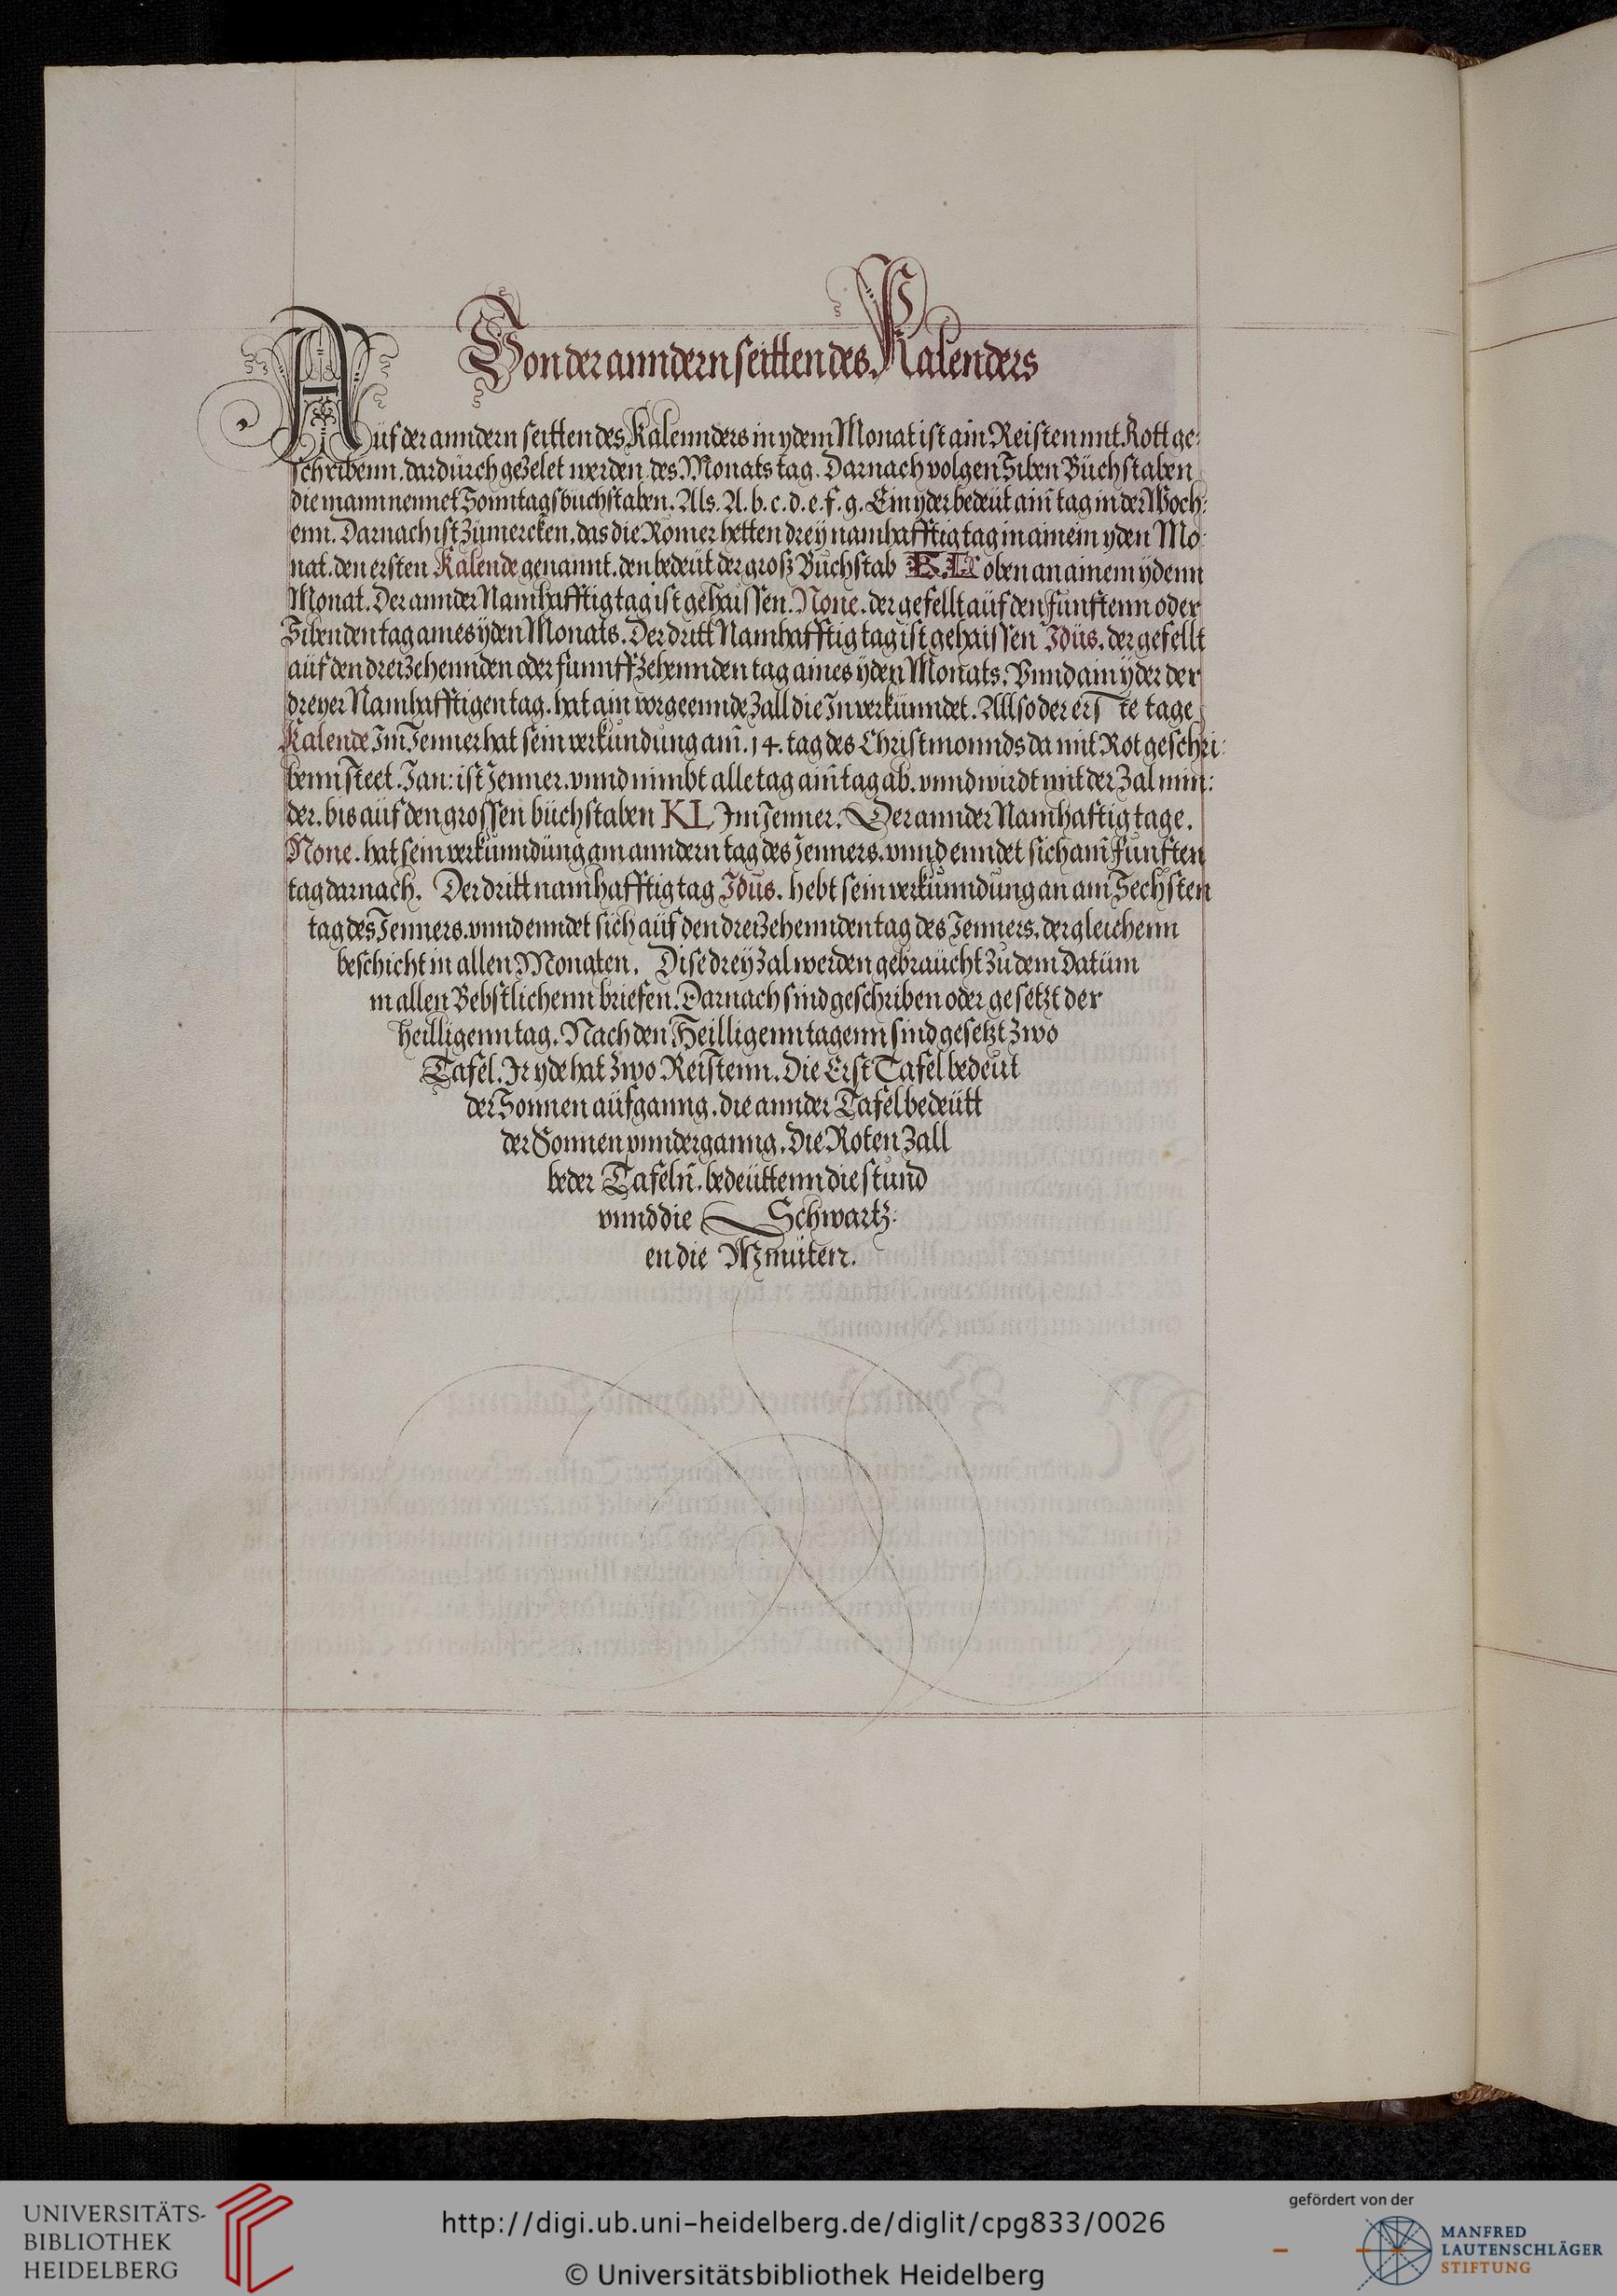 Von der anndern seitten des Kalenders
Auf der anndern seitten des Kalennders in ydem Monat ist ain Reisten mit Rott ge:
schribenn. dardürch gezelet werden des Monats tag. Darnach volgen Siben Büchstaben
die mann nennet Sonntagsbüchstaben. Als. A. b. c. d. e. f. g. Ein yder bedeüt ain̄ tag in der Woch:
enn. Darnach ist zümercken, das die Römer hetten dreÿ namhafftig tag in ainem yden Mo:
nat. den ersten Kalende genannt. den bedeüt der groß Büchstab K.L. oben an ainem ÿdenn
Monat. Der annder Namhafftig tag ist gehaissen. None. der gefellt aüf den funftenn oder
Sibenden tag aines ÿden Monats. Der dritt Namhafftig tag ist gehaissen Jdüs. der gefellt
aüf den dreizehennden oder funnffzehennden tag aines ÿden Monats. Vnnd ain ÿder der
dreyer Namhafftigen tag. hat ain vorgeennde zall die Jn verkünndet. Allso der erste tage
Kalende Jm̄ Jenner hat sein verkündung am̄ .14. tag des Christmonnds da mit Rot geschri:
benn steet. Jan: ist Jenner. vnnd nimbt alle tag ain̄ tag ab. vnnd wirdt mit der zal min:
der. bis aüf den grossen büchstaben KL Jm Jenner. Der annder Namhaftig tage.
None. hat sein verkünndüng am anndern tag des Jenners. vnnd enndet sich am̄ funften
tag darnach. Der dritt namhafftig tag Jdüs. hebt sein verkünndung an am̄ Sechsten
tag des Jenners. vnnd enndet sich aüf den dreizehennden tag des Jenners. dergleichenn
beschicht in allen Monaten. Dise dreÿ zal werden gebraücht zu dem Datüm
in allen Bebstlichenn briefen. Darnach sind geschriben oder gesetzt der
heilligenn tag. Nach den Heilligenn tagenn sind gesetzt zwo
Tafel. Jr yde hat zwo Reistenn. Die Erst Tafel bedeüt
der Sonnen aüfganng. die annder Tafel bedeütt
der Sonnen vnnderganng. Die Roten zall
beder Tafeln̄. bedeüttenn die stund
vnnd die Schwartz:
en die Mynüten.
UNIVERSITÄTS-
BIBLIOTHEK
HEIDELBERG
http://digi.ub.uni-heidelberg.de/diglit/cpg833/0026
© Universitätsbibliothek Heidelberg
gefördert von der
MANFRED
LAUTENSCHLÄGER
STIFTUNG